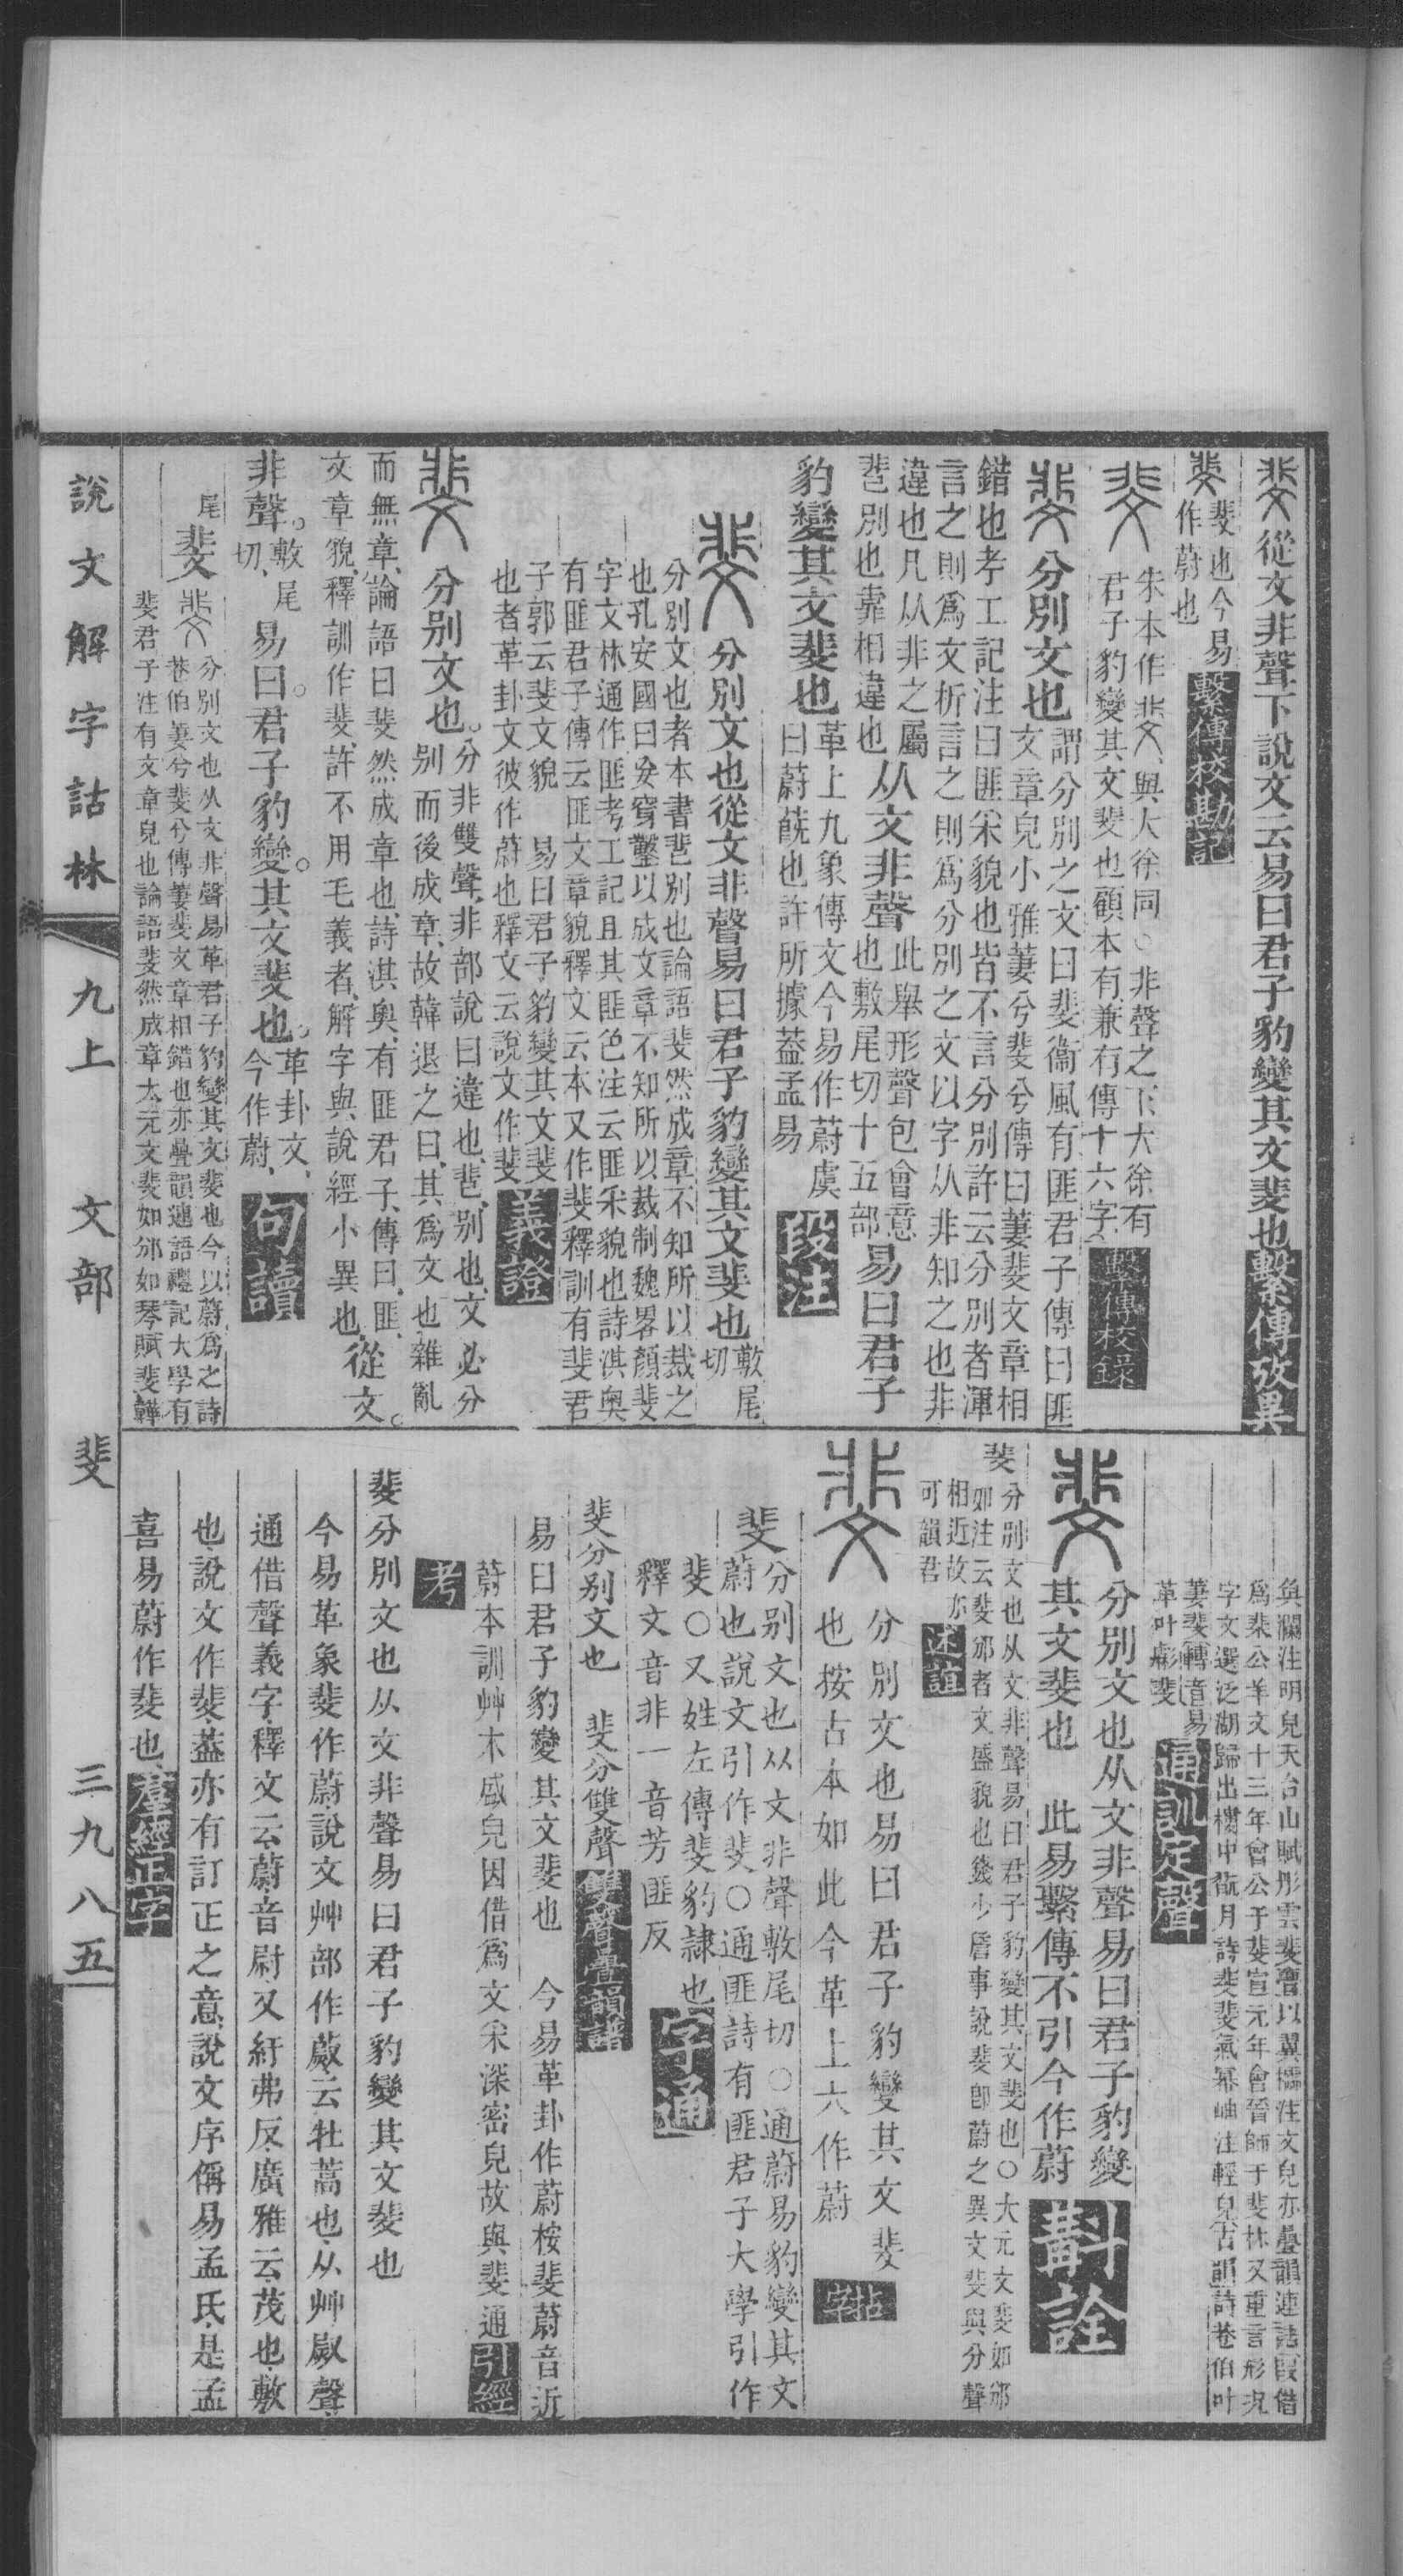 斐從文非聲下說文云易曰君子豹變其文斐也繫傳攷異
斐斐也今易
作蔚也繫傳校勘記
斐朱本作斐與大徐同○非聲之下大徐有
君子豹變其文斐也顧本有兼有傳十六字繫傳校錄
斐分別文也謂分別之文曰斐衞風有匪君子傳曰匪
文章皃小雅萋兮斐兮傳曰萋斐文章相
錯也考工記注曰匪采貌也皆不言分別許云分別者渾
言之則爲文析言之則爲分別之文以字从非知之也非
違也凡从非之屬
辈別也靠相違也从文非聲此舉形聲包會意
也敷尾切十五部易曰君子
豹變其文斐也革上九象傳文今易作蔚虞
曰蔚蔇也許所據葢孟易段注
斐分別文也從文非聲易曰君子豹變其文斐也敷尾
切
分別文也者本書辈別也論語斐然成章不知所以裁之
也孔安國曰妄穿鑿以成文章不知所以裁制魏畧顏斐
字文林通作匪考工記且其匪色注云匪采貌也詩淇奥
有匪君子傳云匪文章貌釋文云本又作斐釋訓有斐君
子郭云斐文貌 易曰君子豹變其文斐
也者革卦文彼作蔚也釋文云說文作斐義證
斐分別文也分非雙聲非部說曰違也辈別也文必分
別而後成章故韓退之曰其爲文也雜亂
而無章論語曰斐然成章也詩淇奧有匪君子傳曰匪
文章貌釋訓作斐許不用毛義者解字與說經小異也從文
非聲敷尾
切易曰君子豹變其文斐也革卦文
今作蔚句讀
尾
斐斐分別文也从文非聲易革君子豹變其文斐也今以蔚爲之詩
巷伯萋兮斐兮傳萋斐文章相錯也亦疊韻連語禮記大學有
斐君子注有文章皃也論語斐然成章太元文斐如邠如琴賦斐韡
奐爛注明皃天台山賦彤雲斐亹以翼櫺注文皃亦疊韻連語叚借
爲棐公羊文十三年會公于斐宣元年會晉師于斐林又重言形況
字文選泛湖歸出樓中翫月詩斐斐氣冪岫注輕皃古韻詩巷伯叶
萋斐轉音易
革叶彪斐通訓定聲
斐分別文也从文非聲易曰君子豹變
其文斐也 此易繫傳不引今作蔚斠詮
斐分別文也从文非聲易曰君子豹變其文斐也○大元文斐如邠
如注云斐邠者文盛貌也錢少詹事說斐卽蔚之異文斐與分聲
相近故亦
可韻君述誼
斐分別文也易曰君子豹變其文斐
也按古本如此今革上六作蔚拈字
斐分別文也从文非聲敷尾切○通蔚易豹變其文
蔚也說文引作斐○通匪詩有匪君子大學引作
斐○又姓左傳斐豹隸也
釋文音非一音芳匪反字通
斐分別文也 斐分雙聲雙聲疊韻譜
易曰君子豹變其文斐也 今易革卦作蔚桉斐蔚音近
蔚本訓艸木盛皃因借爲文采深密皃故與斐通引經
考
斐分別文也从文非聲易曰君子豹變其文斐也
今易革象斐作蔚說文艸部作蔚云牡蒿也从艸𡰥聲
通借聲義字釋文云蔚音尉又紆弗反廣雅云茂也敷
也說文作斐葢亦有訂正之意說文序偁易孟氏是孟
喜易蔚作斐也羣經正字
說文解字詁林 九上 文部 斐 三九八五